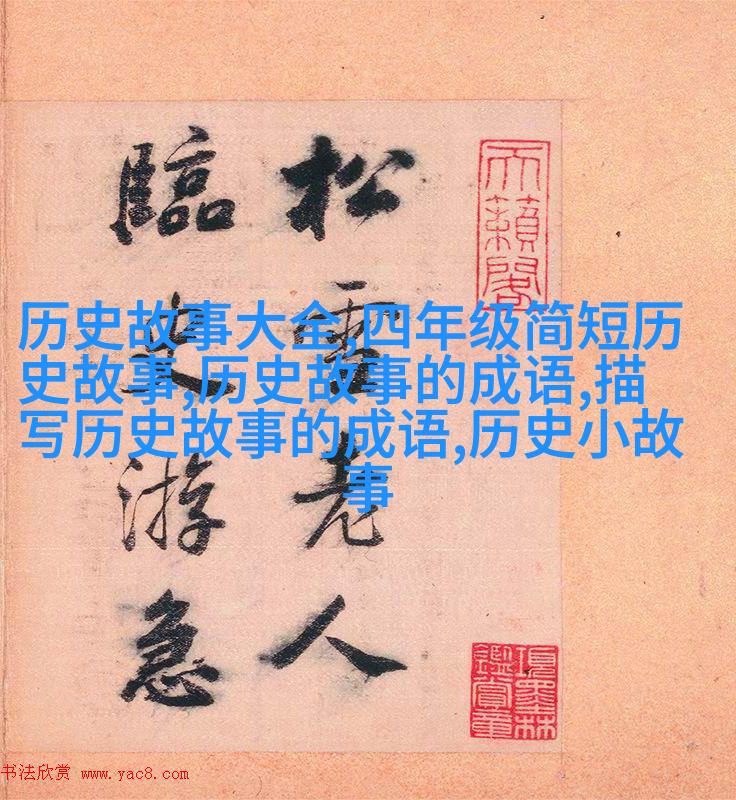 松雪老人
臨史游急
天籟閣
項墨林
鑑賞章
历史故事大全,四年级简短历
史故事,历史故事的成语,描
写历史故事的成语,历史小故
事
书法欣赏 www.yac8.com